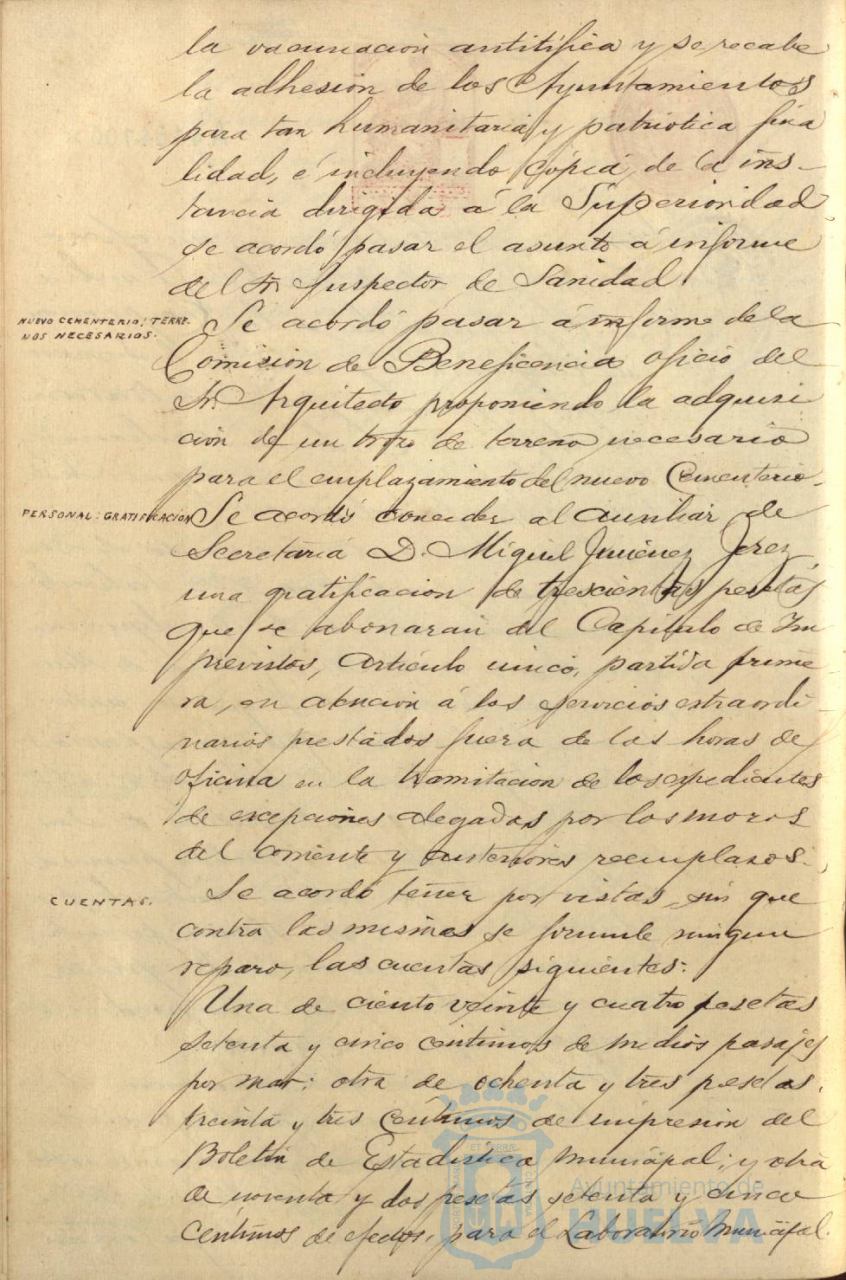 la vacunación antitífica y se recabe
la adhesión de los Ayuntamientos
para tan humanitaria y patriótica fina
lidad, é incluyendo cópia, de la ins-
tancia dirigida á la Superioridad
se acordó pasar el asunto á informe
del Sr. Inspector de Sanidad.
NUEVO CEMENTERIO: TERRE-
NOS NECESARIOS.
Se acordó pasar á informe de la
Comisión de Beneficencia oficio del
Sr. Arquitecto proponiendo la adquisi
ción de un trozo de terreno necesario
para el emplazamiento del nuevo Cementerio.
PERSONAL: GRATIFICACION
Se acordó conceder al auxiliar de
Secretaría D. Miguel Jiménez Jerez,
una gratificacion de trescientas pesetas
que se abonarán del Capítulo de Im
previstos, artículo único, partida prime
ra, en atención á los servicios extraordi
narios prestados fuera de las horas de
oficina en la tramitacion de los expedientes
de excepciones alegadas por los mozos
del corriente y anteriores reemplazos.
CUENTAS.
Se acordó tener por vistas, sin que
contra las mismas se formule ningun
reparo, las cuentas siguientes:
Una de ciento veinte y cuatro pesetas
setenta y cinco céntimos de medios pasajes
por mar: otra de ochenta y tres pesetas,
treinta y tres céntimos de impresión del
Boletín de Estadística Municipal; y otra
de noventa y dos pesetas setenta y cinco
céntimos de efectos, para el Laboratorio Municipal.
Ayuntamiento de
HUELVA